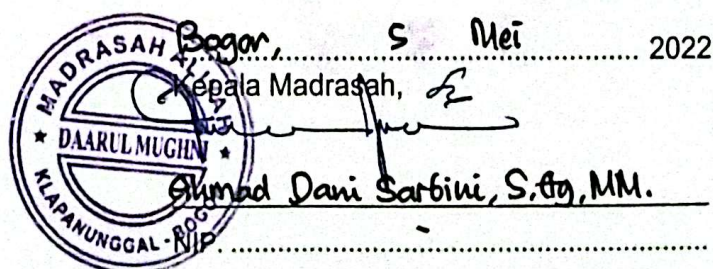 Bogor, 5 Mei 2022
Kepala Madrasah,
Ahmad Dani Sarbini, S.Ag, MM.
NIP. -
MADRASAH ALIYAH
DAARUL MUGHNI
KLAPANUNGGAL - BOGOR